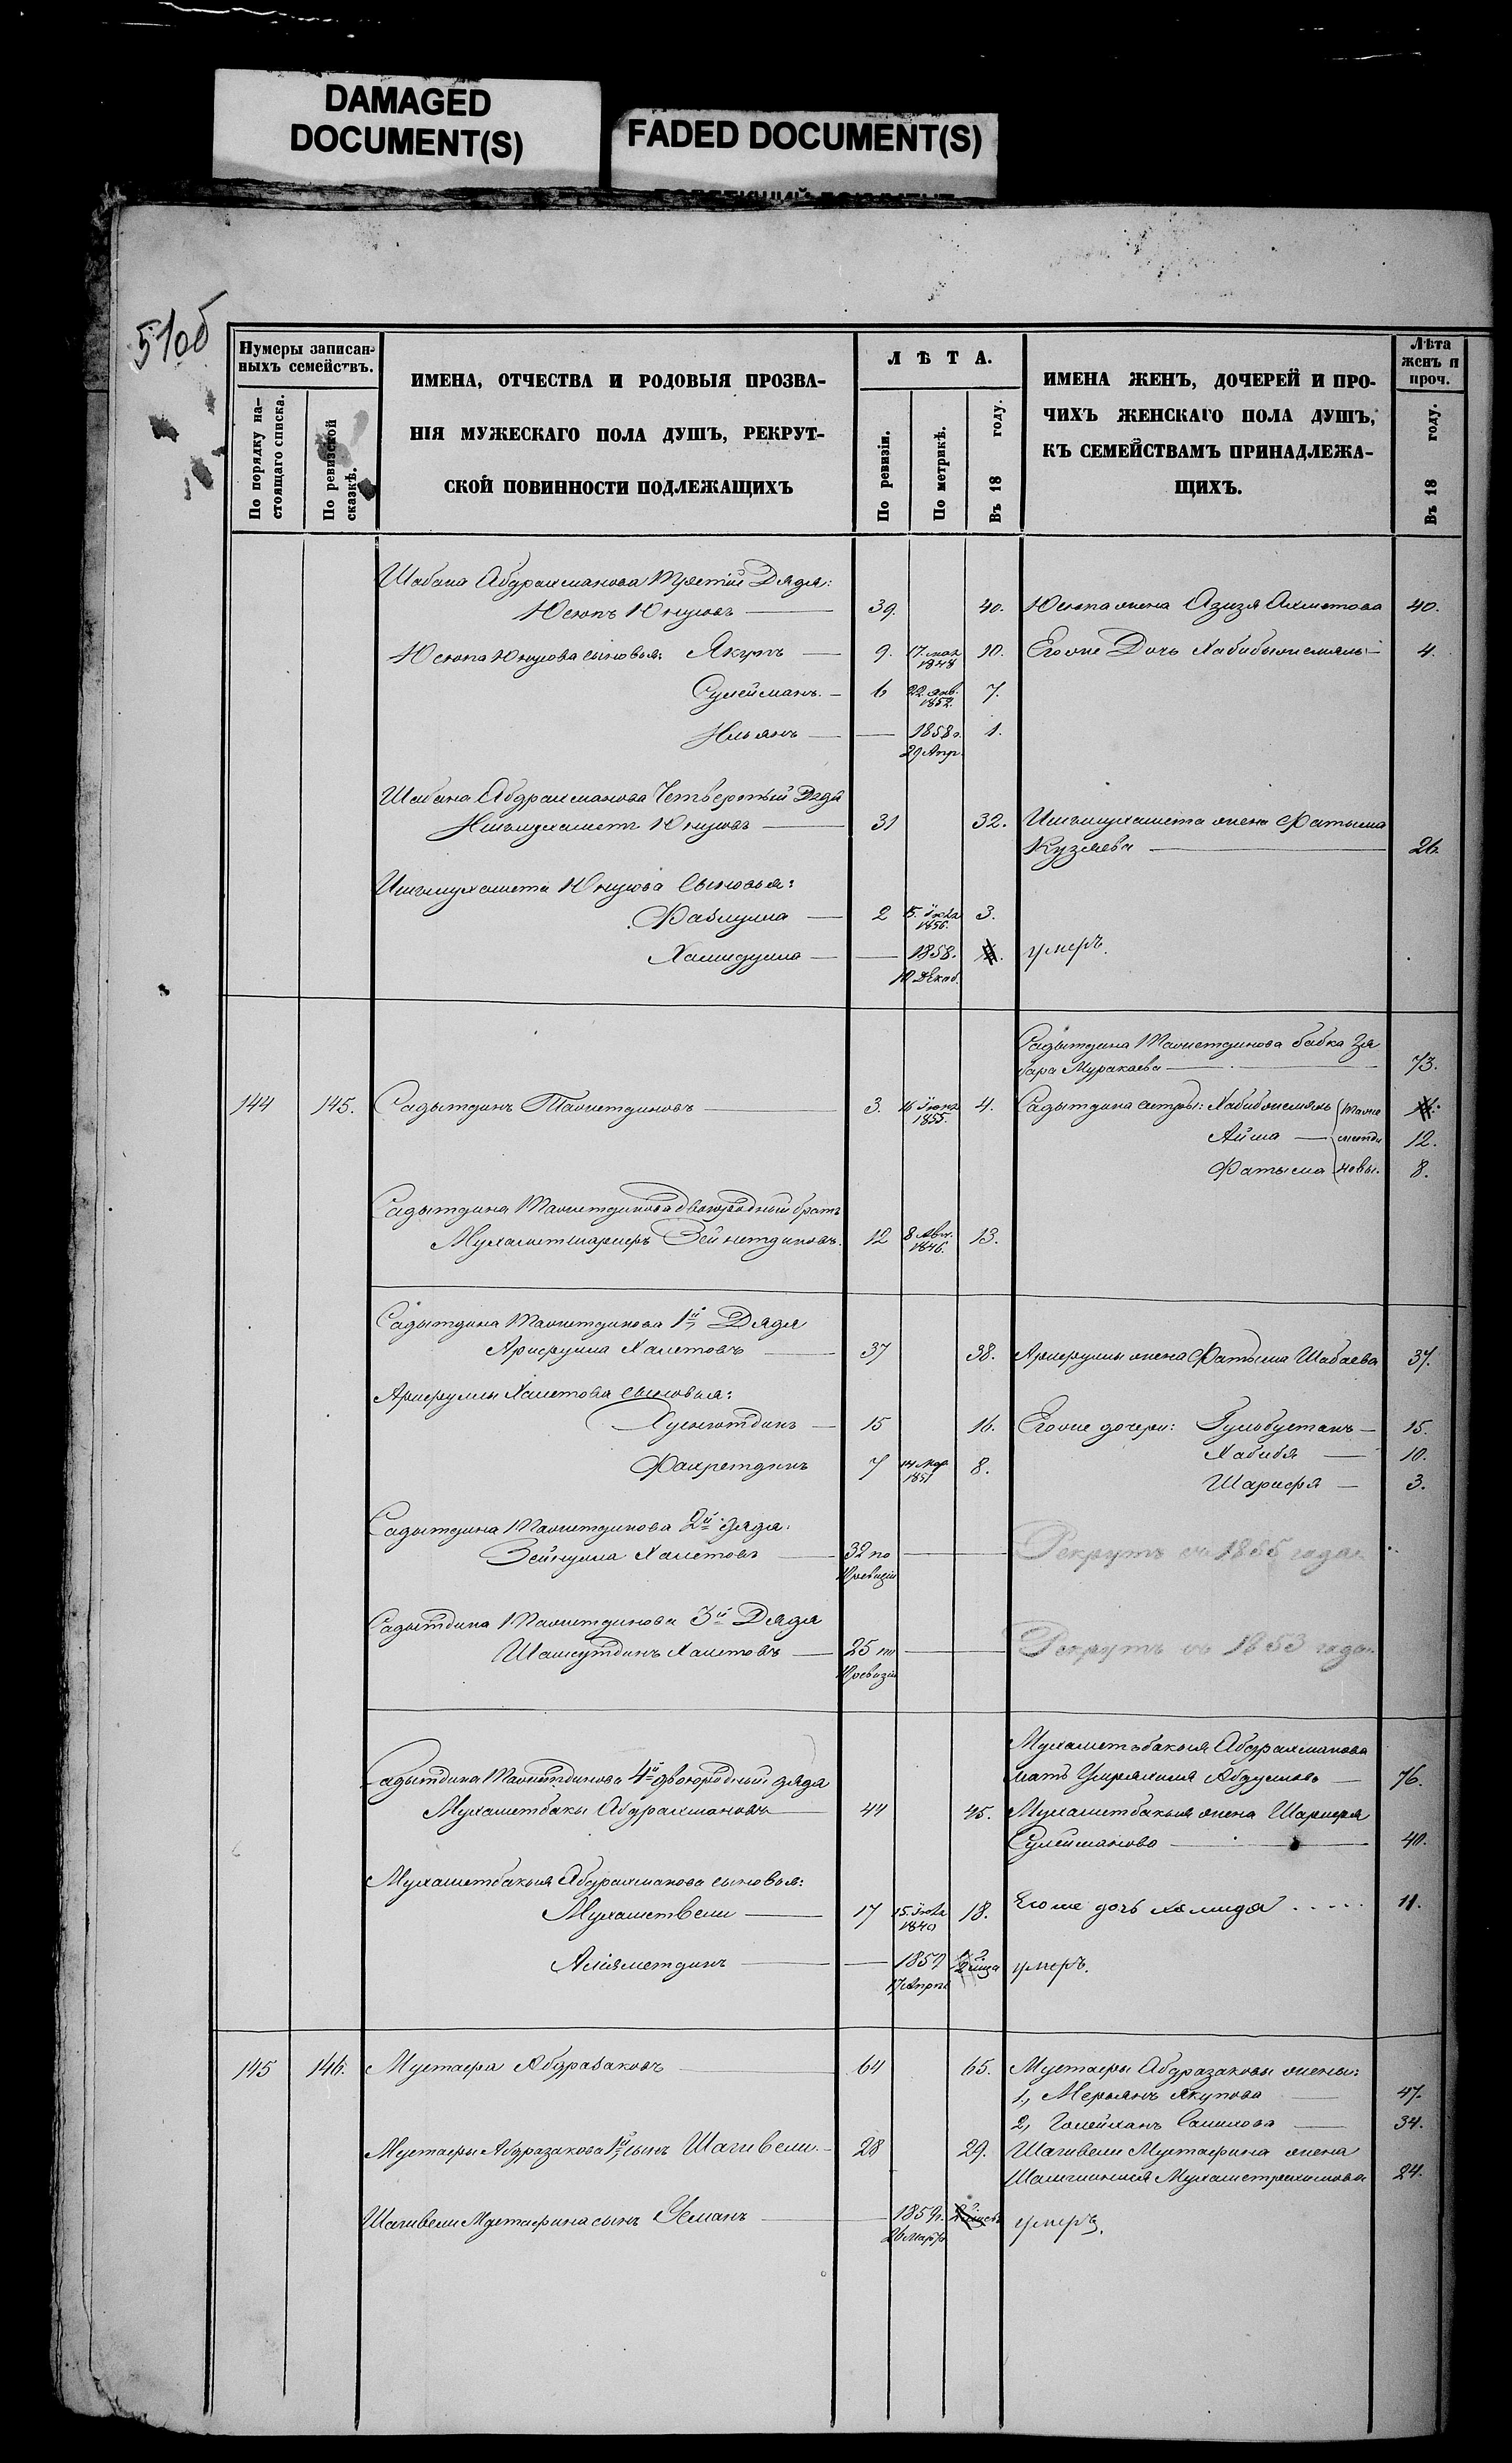 DAMAGED
DOCUMENT(S)
FADED DOCUMENT(S)
51об
Нумеры записан-
ныхъ семействъ.
По порядку на-
стоящаго списка.
По ревизской
сказкѣ.
ИМЕНА, ОТЧЕСТВА И РОДОВЫЯ ПРОЗВА-
НІЯ МУЖЕСКАГО ПОЛА ДУШЪ, РЕКРУТ-
СКОЙ ПОВИННОСТИ ПОДЛЕЖАЩИХЪ
ЛѢТА.
По ревизіи.
По метрикѣ.
Въ 18 году.
ИМЕНА ЖЕНЪ, ДОЧЕРЕЙ И ПРО-
ЧИХЪ ЖЕНСКАГО ПОЛА ДУШЪ,
КЪ СЕМЕЙСТВАМЪ ПРИНАДЛЕЖА-
ЩИХЪ.
Лѣта
женъ и
проч.
Въ 18 году.
Шабана Абдрахманова Третій Дядя:
Юсюпъ Юнусовъ — 39. 40. Юсюпа жена Азизя Ахметова 40.
Юсюпа Юнусова сыновья: Якупъ — 9. 17. мая 1848 10. Егоже Дочь 4.
Сулейманъ. — 6 22. янв. 1852. 7.
— 1858 г. 1.
29 Апр.
Шабана Абдрахманова Четвертый Дядя
Ишъмухаметъ Юнусовъ — 31 32. Ишъмухамета жена Фатыма
Кузяева — 26.
Ишъмухамета Юнусова Сыновья:
— 2 1856. 3.
Хамидулла — 1858. умеръ.
10 Декаб.
Садытдина бабка
Муракаева — 73.
144 145. Садытдинъ — 3. 16 1855. 4. Садытдина сестры:
Айша — 12.
Фатыма новы. 8.
Садытдина двоюродный братъ
Мухаметшарифъ Зейнетдиновъ. 12 8 Авг. 1846. 13.
Садытдина 1й Дядя
Арифулла Хаметовъ — 37 38. Арифуллы жена Фатыма Шабаева 37.
Арифуллы Хаметова сыновья:
Хуснютдинъ — 15 16. Егоже дочери: Гульбустанъ — 15.
Фахретдинъ 7 14 Мар. 1851 8. Хабибя — 10.
Шарифя — 3.
Садытдина 2й дядя:
Зейнулла Хаметовъ — 32 по — Рекрутъ съ 1855 года
Садытдина 3й Дядя
Шамсутдинъ Хаметовъ — 25 по — Рекрутъ съ 1853 года
Мухаметъбакыя Абдрахманова
мать — 76.
Садытдина 4й двоюродный дядя
Мухаметбакы Абдрахмановъ 44 45. Мухаметбакыя жена Шарифя
Сулейманова — 40.
Мухаметбакыя Абдрахманова сыновья:
Мухаметвели — 17 15. 1840 18. Егоже дочь Хамида ..... 11.
— 1859 умеръ.
17 Апрѣл
145 146. Мустафа Абдразаковъ — 64 65. Мустафы Абдразакова жены:
1, Якупова — 47.
2, — 34.
Мустафы Абдразакова 1й сынъ Шагивели. — 28 29. Шагивели Мустафина жена
Мухаметрахимова 24.
Шагивели Мустафина сынъ Усманъ — 1859 г. умеръ.
26 Марта